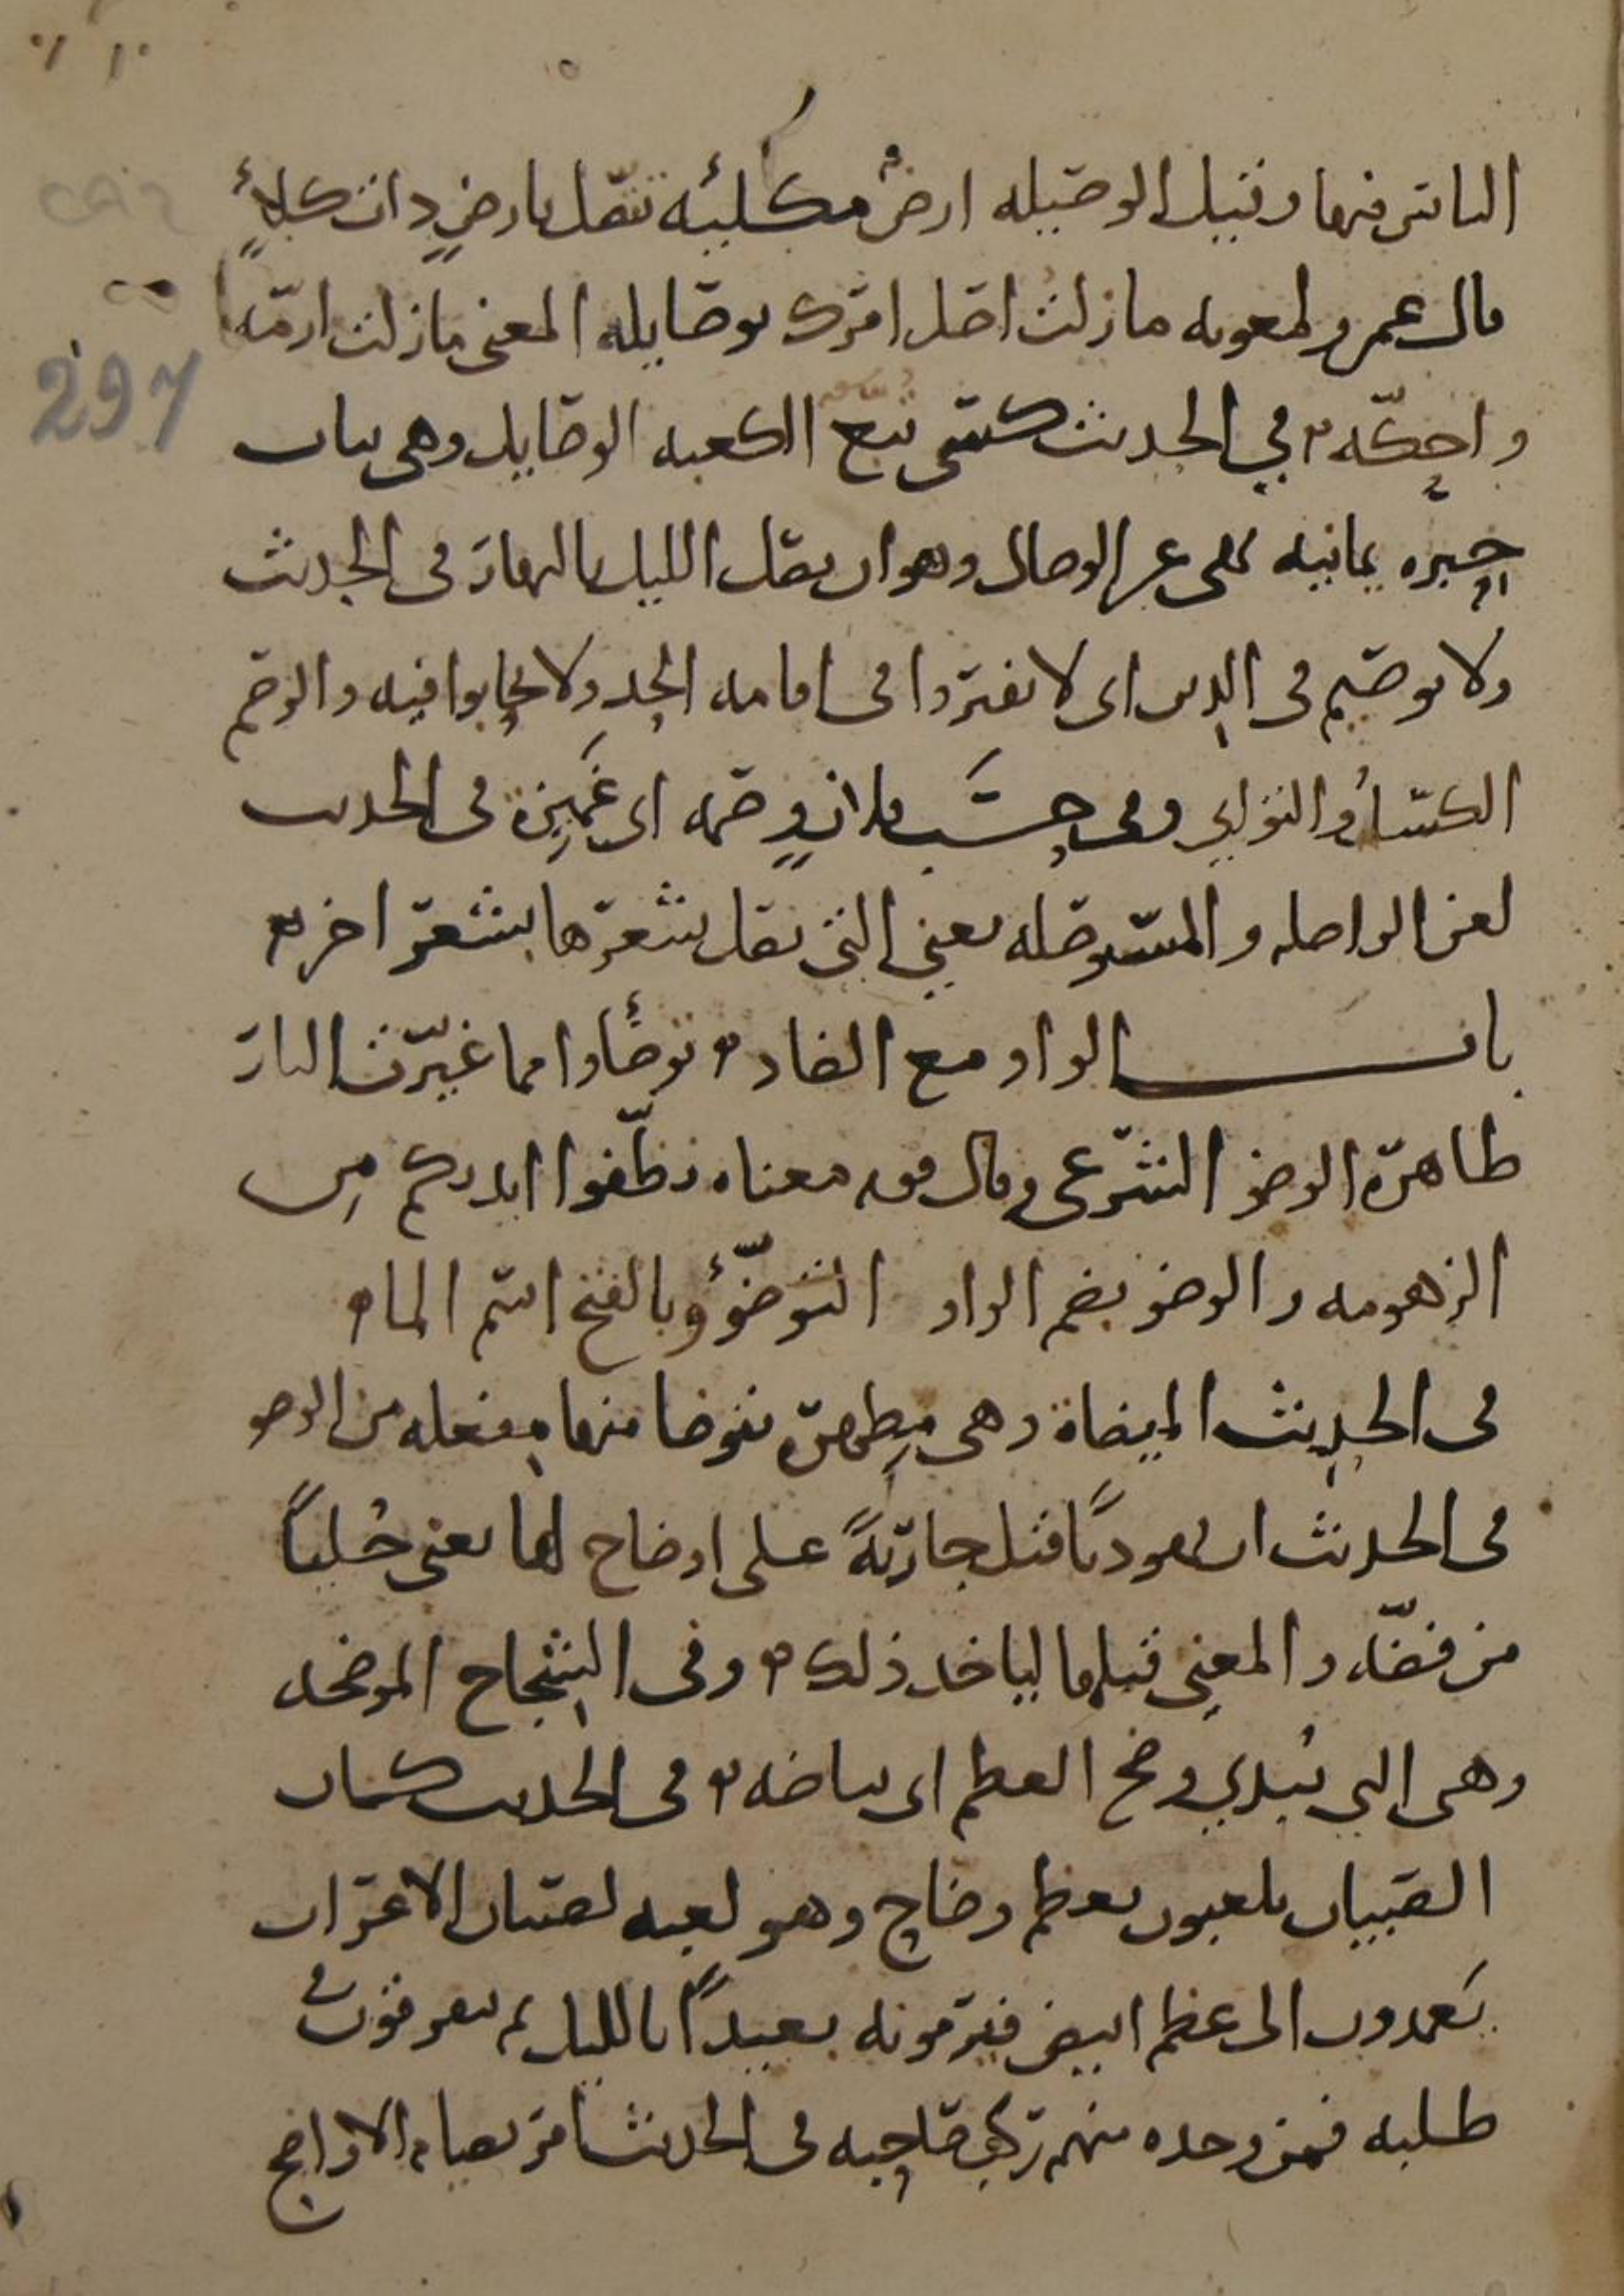 الناس فيها وقيل الوصيله ارضٌ مكلئه تتصل بارضٍ ذات كلأٍ
قال عمرو لمعويه ما زلت اصل امرك بوصايله المعنى ما زلت ارمّه
297
واحكّه في الحديث كسى تبع الكعبه الوصايل وهى ثياب
حِبره يمانيه نهى عن الوصال وهو ان يصل الليل بالنهار فى الحديث
ولا توصيم فى الدين اى لا تفتروا فى اقامه الحد ولا تحابوا فيه والوصم
الكسل والتوانى وفى حسَب فلانٍ وصمه اى غَمِيزة فى الحديث
لعن الواصله والمستوصله يعني التى تصل شعرها بشعر اخر
باب الواو مع الضاد توضّأوا مما غيّرت النار
ظاهره الوضو الشرعى وقال قوم معناه نظّفوا ايديكم مِن
الزهومه والوضو بضم الواو التوضّؤ وبالفتح اسم الماء
فى الحديث الميضاة وهى مِطهرة يتوضا منها مِفعله من الوضو
فى الحديث ان يهوديًا قتل جاريةً على اوضاح لها يعنى حُليًا
من فضّه والمعنى قتلها لياخذ ذلك وفى الشِجاج الموضحه
وهى التي تُبدي وضح العظم اى بياضه فى الحديث كان
الصبيان يلعبون بعظم وضاح وهو لعبه لصبيان الاعراب
يَعمدون الى عظم ابيض فيرمونه بعيدًا بالليل ثم يتفرقون فى
طلبه فمن وجده منهم ركب صاحبه فى الحديث امر بصيام الاواضح